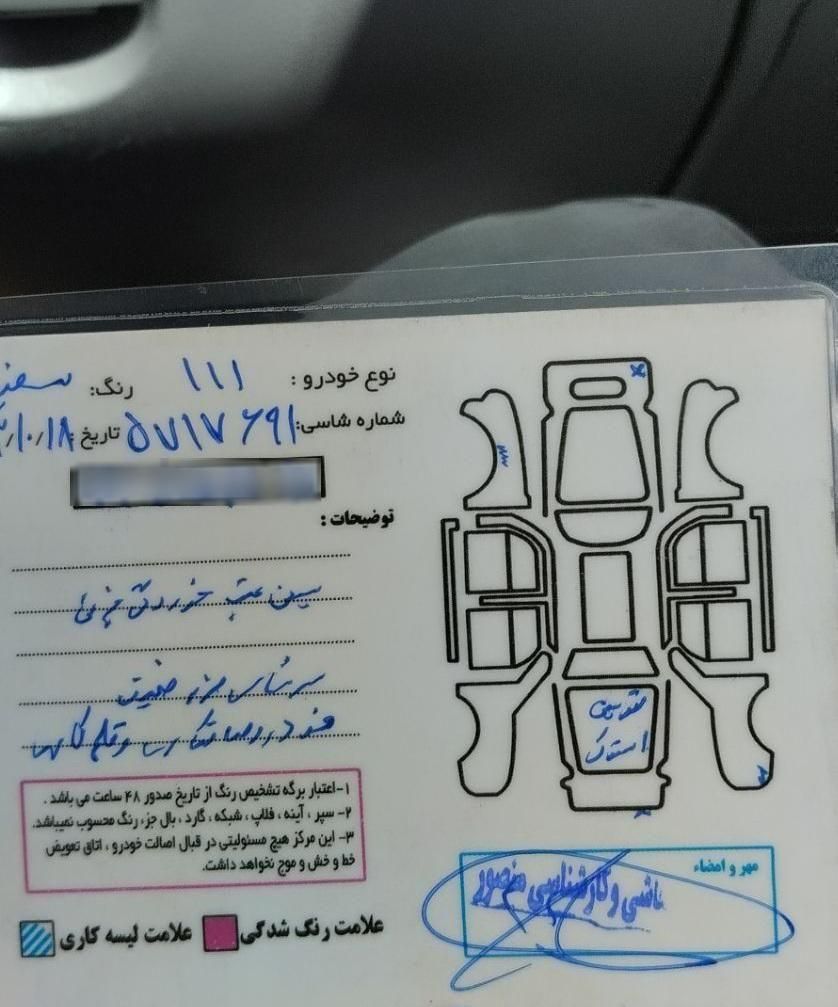 نوع خودرو : ۱۱۱ رنگ:
شماره شاسی: ۵۷۱۷۶۹۱ تاریخ ۱۰/۱۸
توضیحات :
سینی عقب خوردگی جزئی
سرشاسی
۱-اعتبار برگه تشخیص رنگ از تاریخ صدور ۴۸ ساعت می باشد .
۲- سپر ، آینه ، فلاپ ، شبکه ، گارد ، بال جز، رنگ محسوب نمیباشد.
۳- این مرکز هیچ مسئولیتی در قبال اصالت خودرو ، اتاق تعویض
خط و خش و موج نخواهد داشت.
علامت رنگ شدگی علامت لیسه کاری
استوک
مهر و امضاء
نقاشی و کارشناسی منصور